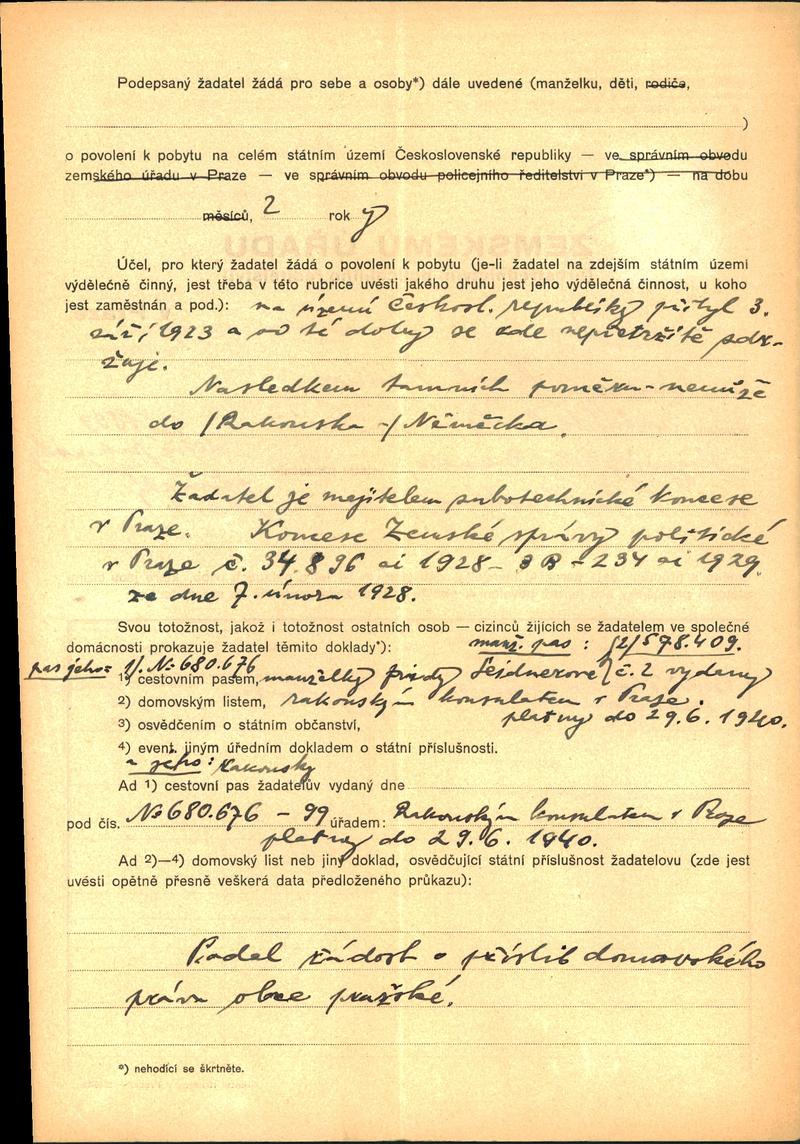 Podepsaný žadatel žádá pro sebe a osoby*) dále uvedené (manželku, děti, rodiče,
)
o povolení k pobytu na celém státním území Československé republiky — ve správním obvodu
zemského úřadu v Praze — ve správním obvodu policejního ředitelství v Praze*) — na dobu
měsíců, 2 rok y
Účel, pro který žadatel žádá o povolení k pobytu (je-li žadatel na zdejším státním území
výdělečně činný, jest třeba v této rubrice uvésti jakého druhu jest jeho výdělečná činnost, u koho
jest zaměstnán a pod.): na území českosl. republiky přibyl 3.
září 1923 a od té doby se zde nepřetržitě zdr-
žuje.
Následkem tamních poměrů nemůže
do /Rakouska -/ Německa.
Žadatel je majitelem zubotechnické koncese
v Praze. Koncese Zemské správy politické
v Praze č. 34.896 ai 1928 - 8 B - 234 ai 1929
ze dne 7. února 1928.
Svou totožnost, jakož i totožnost ostatních osob — cizinců žijících se žadatelem ve společné
domácnosti prokazuje žadatel těmito doklady*): manž. pas: (2) 578.409.
pas jeho: 1/. No 680.676
1) cestovním pasem, manželky Fridy č. 2 vydaný
2) domovským listem, rakouským konsulátem v Praze.
3) osvědčením o státním občanství, platný do 29.6. 1940.
4) event. jiným úředním dokladem o státní příslušnosti.
a jeho: rakouský
Ad 1) cestovní pas žadatelův vydaný dne
pod čís. No 680.676 - 99 úřadem: Rakouským konsulátem v Praze
platný do 29.6. 1940.
Ad 2)—4) domovský list neb jiný doklad, osvědčující státní příslušnost žadatelovu (zde jest
uvésti opětně přesně veškerá data předloženého průkazu):
Podal žádost o příslib domovského
práva obce pražské.
*) nehodící se škrtněte.